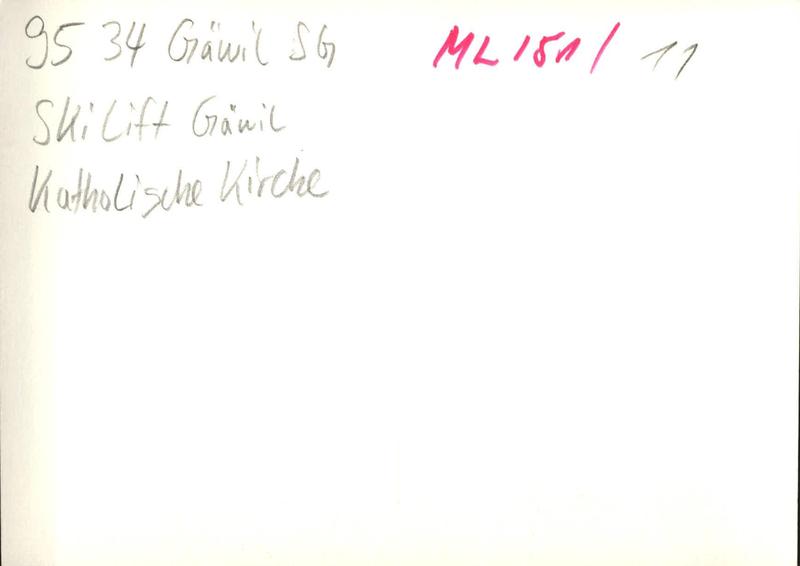 95 34 Gäwil SG ML 151/ 11
Skilift Gäwil
Katholische Kirche